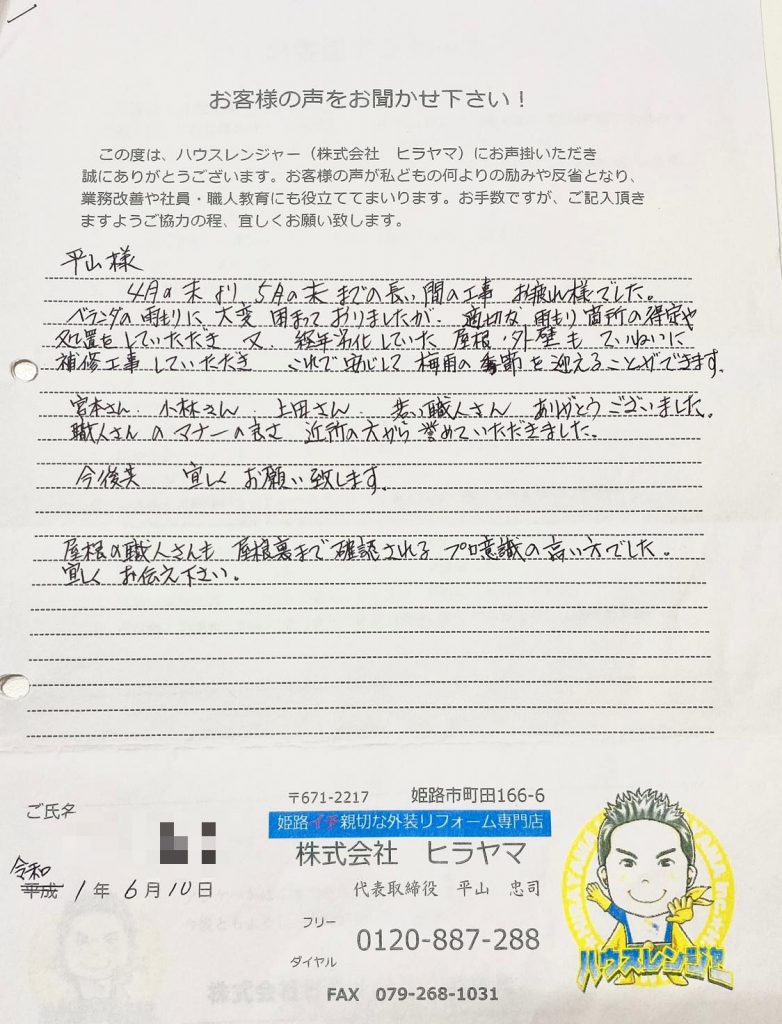 お客様の声をお聞かせ下さい！
この度は、ハウスレンジャー（株式会社　ヒラヤマ）にお声掛いただき
誠にありがとうございます。お客様の声が私どもの何よりの励みや反省となり、
業務改善や社員・職人教育にも役立ててまいります。お手数ですが、ご記入頂き
ますようご協力の程、宜しくお願い致します。
平山様
4月の末より5月の末までの長い間の工事 お疲れ様でした。
ベランダの雨もりに大変困まっておりましたが、適切な雨もり箇所の特定や
処置をしていただき 又、経年劣化していた屋根・外壁もていねいに
補修工事していただき これで安心して梅雨の季節を迎えることができます。
宮本さん、小林さん、上田さん、若い職人さん ありがとうございました。
職人さんのマナーの良さ 近所の方から誉めていただきました。
今後共 宜しくお願い致します。
屋根の職人さんも 屋根裏まで確認される プロ意識の高い方でした。
宜しくお伝え下さい。
ご氏名
令和
平成 1年 6月10日
〒671-2217 姫路市町田166-6
姫路イチ親切な外装リフォーム専門店
株式会社　ヒラヤマ
代表取締役　平山　忠司
フリー
ダイヤル
0120-887-288
FAX 079-268-1031
ハウスレンジャー